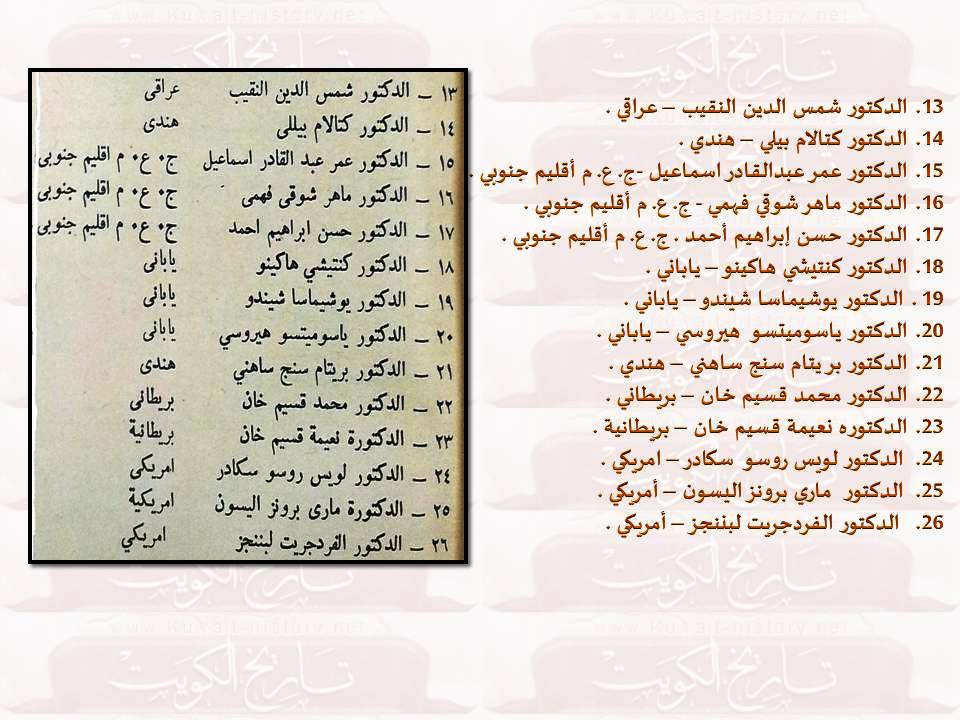 13. الدكتور شمس الدين النقيب – عراقي .
14. الدكتور كتالام بيلي – هندي .
15. الدكتور عمر عبدالقادر اسماعيل -ج. ع. م أقليم جنوبي .
16. الدكتور ماهر شوقي فهمي - ج. ع. م أقليم جنوبي .
17. الدكتور حسن إبراهيم أحمد . ج. ع. م أقليم جنوبي .
18. الدكتور كنتيشي هاكينو – ياباني .
19 . الدكتور يوشيماسا شيندو – ياباني .
20. الدكتور ياسوميتسو هيروسي – ياباني .
21. الدكتور بريتام سنج ساهني – هندي .
22. الدكتور محمد قسيم خان – بريطاني .
23. الدكتوره نعيمة قسيم خان – بريطانية .
24. الدكتور لويس روسو سكادر – امريكي .
25. الدكتور ماري برونز اليسون – أمريكي .
26. الدكتور الفردجريت لبننجز – أمريكي .
١٣ – الدكتور شمس الدين النقيب عراقى
١٤ – الدكتور كتالام بيللى هندى
١٥ – الدكتور عمر عبد القادر اسماعيل ج٠ ع٠ م اقليم جنوبى
١٦ – الدكتور ماهر شوقى فهمى ج٠ ع٠ م اقليم جنوبى
١٧ – الدكتور حسن ابراهيم احمد ج٠ ع٠ م اقليم جنوبى
١٨ – الدكتور كنتيشي هاكينو يابانى
١٩ – الدكتور يوشيماسا شيندو يابانى
٢٠ – الدكتور ياسوميتسو هيروسي يابانى
٢١ – الدكتور بريتام سنج ساهني هندى
٢٢ – الدكتور محمد قسيم خان بريطانى
٢٣ – الدكتورة نعيمة قسيم خان بريطانية
٢٤ – الدكتور لويس روسو سكادر امريكى
٢٥ – الدكتورة مارى برونز اليسون امريكية
٢٦ – الدكتور الفردجريت لبننجز امريكي
تاريخ الكويت
www.kuwait-history.net